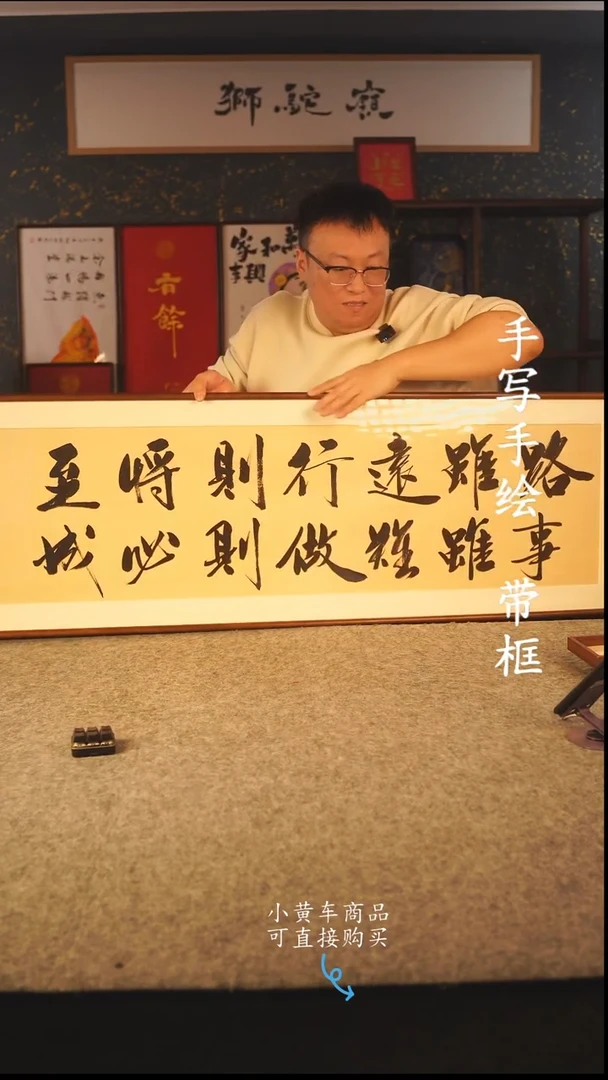 獅駝嶺
有餘
家和萬
事興
路雖遠行則將至
事雖難做則必成
手写手绘 带框
小黄车商品
可直接购买